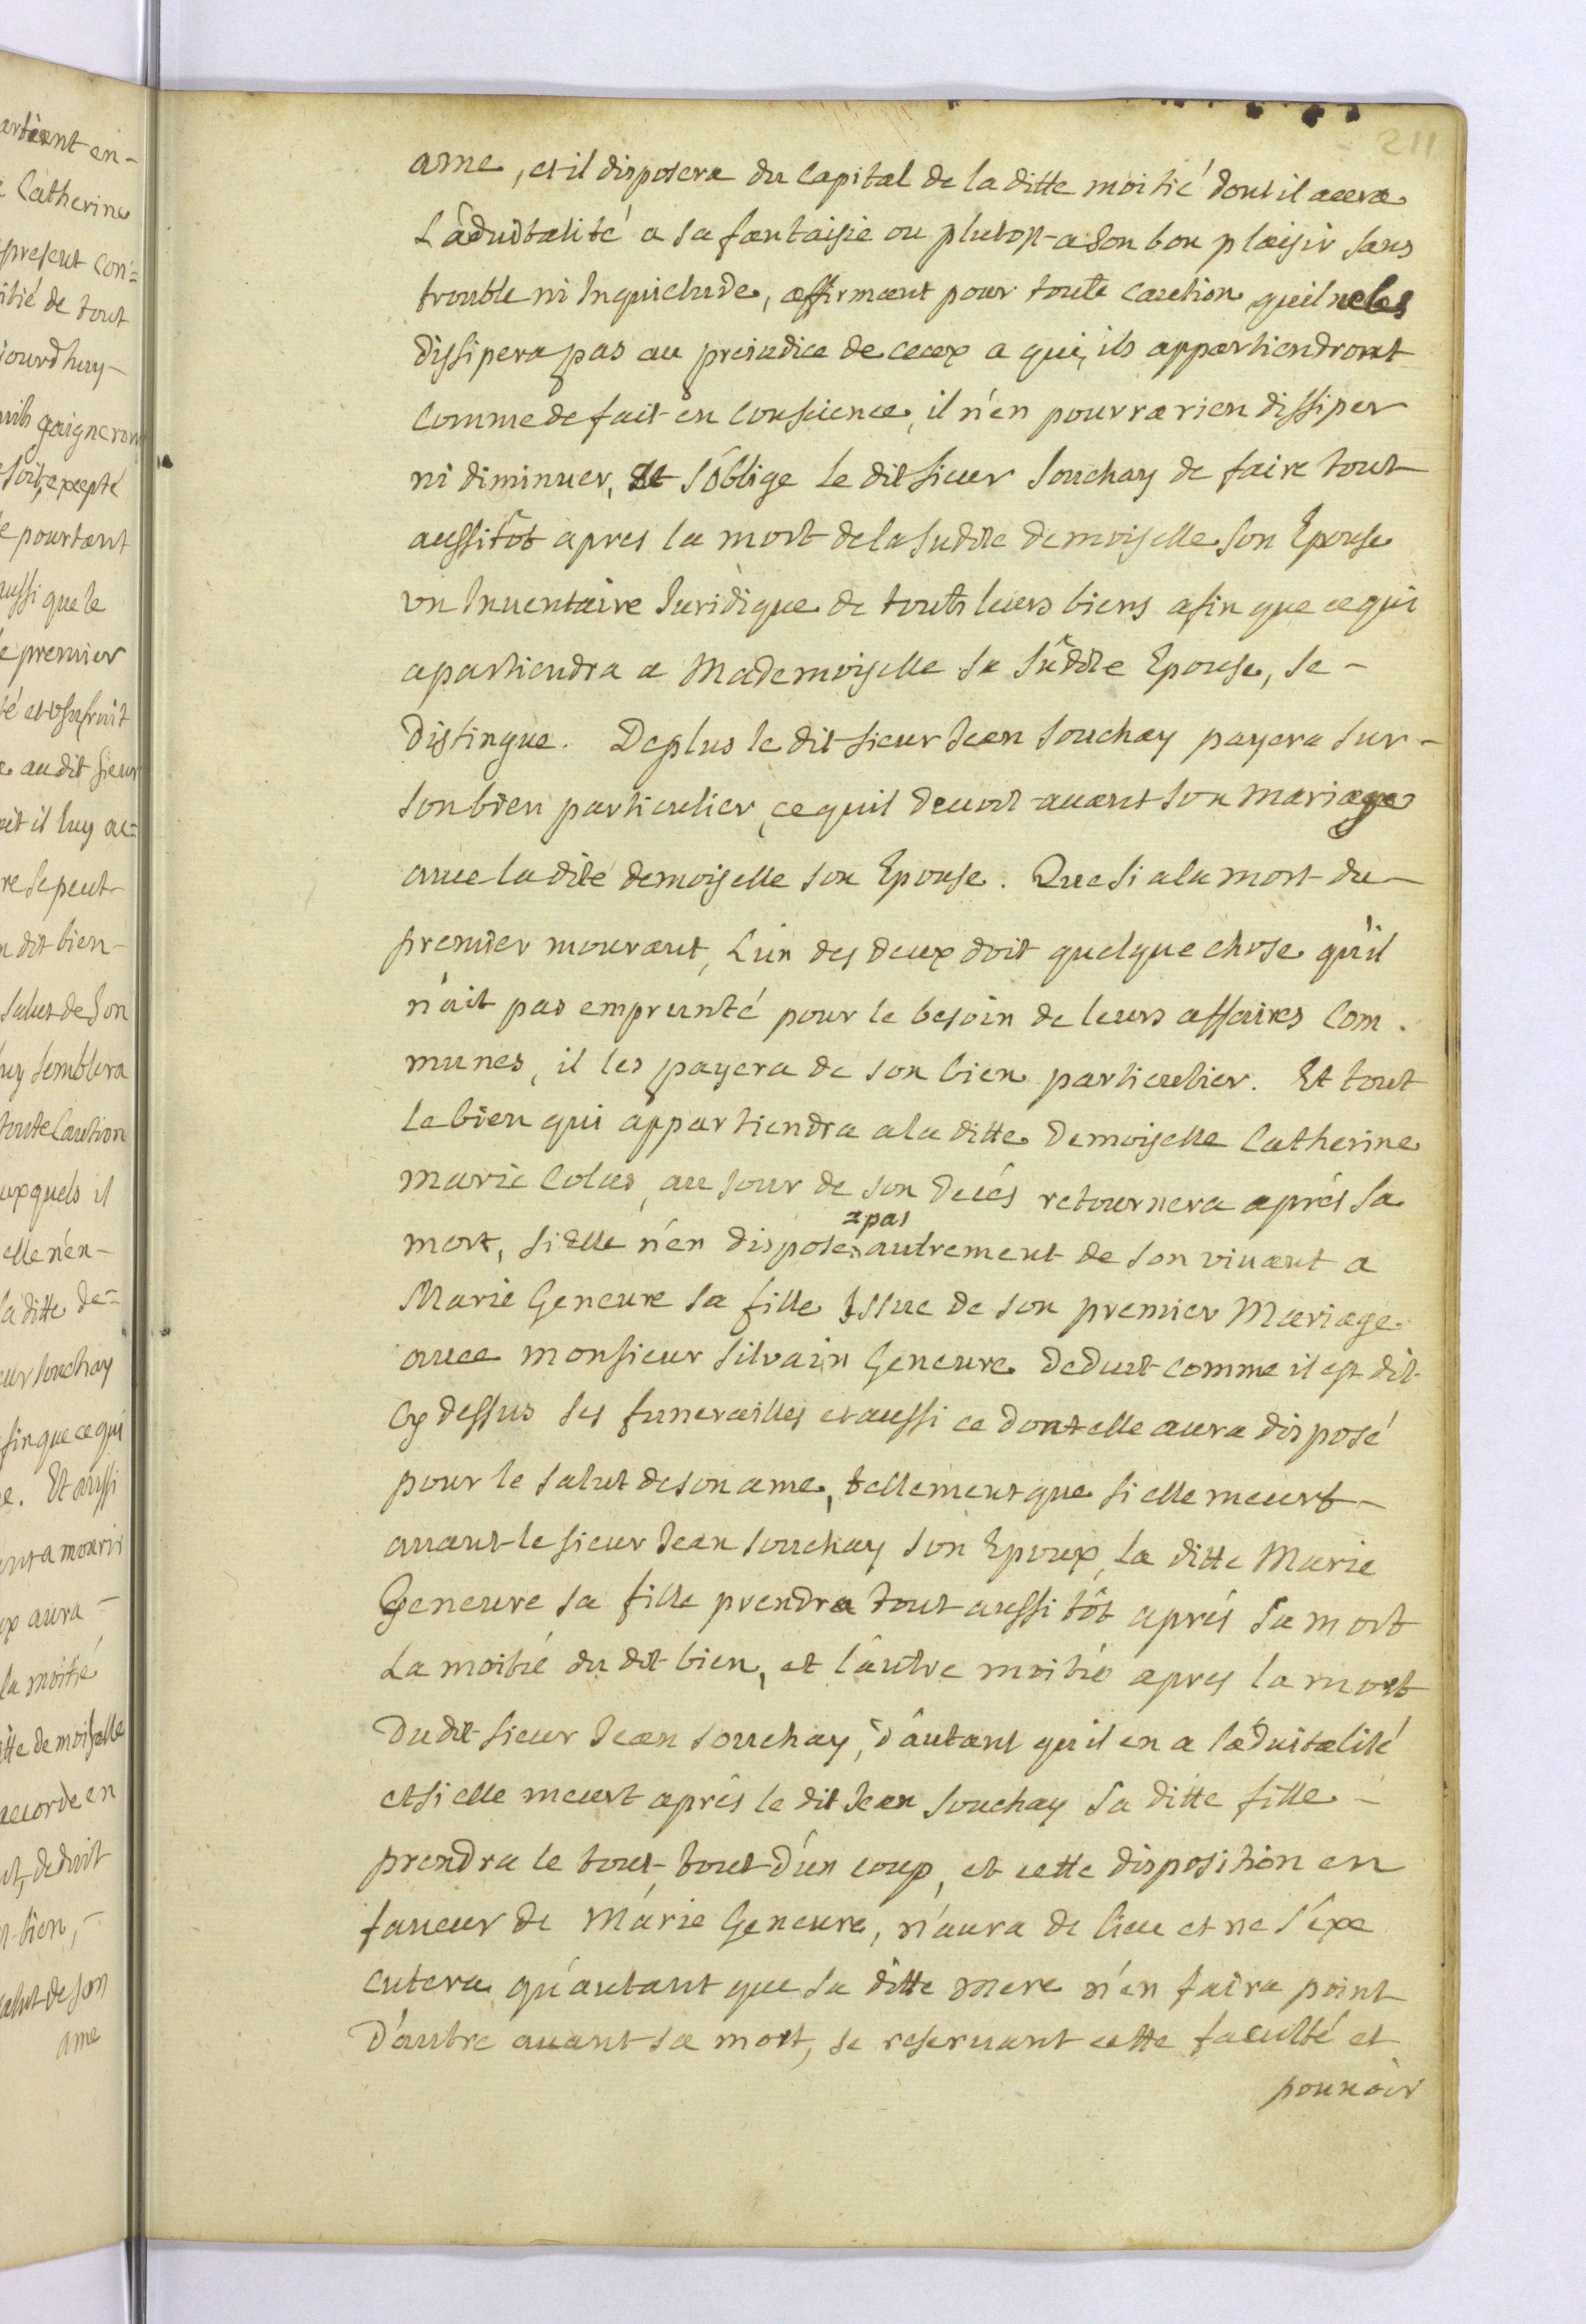 211
ame, et il disposera du Capital de la ditte moitié dont il aura
L'âduitalité a sa fantaisie ou plutost a son bon plaisir sans
trouble ni Inquietude, affirmant pour toute Caution quil ne les
dissipera pas au prejudice de ceux a qui, ils appartiendront
Comme de fait en Conscience, il n'en pourra rien dissiper
ni diminuer, Et s'oblige le dit sieur Souchay de faire tout
aussitôt apres la mort de la sudite demoiselle son Epouse
vn Inuentaire Juridique de touts leurs biens afin que ce qui
apartiendra a Mademoiselle sa sudite Epouse, se -
distingue. De plus le dit sieur Jean Souchay payera sur -
son bien particulier, ce quil deuoit auant son mariage
auec la dite demoiselle son Epouse. Que si a la mort du -
premier mourant, L'un des deux doit quelque chose qu'il
n'ait pas emprunté pour le besoin de leurs affaires Com.
munes, il les payera de son bien particulier. Et tout
le bien qui appartiendra a la ditte Demoiselle Catherine
Marie Colas, au Jour de son Decés retournera aprés sa
mort, si Elle n'en dispose a pas autrement de son viuant a
Marie Geneure sa fille Issue de son premier Mariage
auec monsieur Silvain Geneure deduit comme il est dit
Cy dessus ses funerailles et aussi ce dont elle aura disposé
pour le salut de son ame, tellement que si elle meurt -
auant le sieur Jean Souchay son Epoux, La ditte Marie
Geneure sa fille prendra tout aussi tôt aprés sa mort
La moitié du dit bien, et l'autre moitié apres la mort
Dudit sieur Jean Souchay, d'autant qu'il en a l'aduitalité
et si elle meurt aprés le dit Jean Souchay sa ditte fille -
prendra le tout, tout d'un coup, et cette disposition en
faueur de Marie Geneure, n'aura de lieu et ne s'exe
cutera qu'autant que sa ditte mere n'en faira point
D'autre auant sa mort, se reseruant cette faculté et
pouuoir